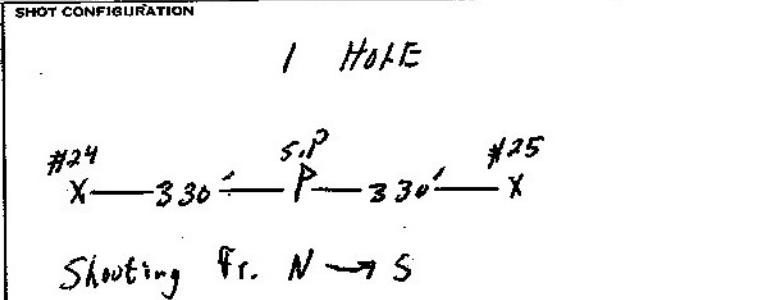 SHOT CONFIGURATION
1 HOLE
#24 S.P #25
X — 330' — P — 330' — X
Shooting Fr. N → S